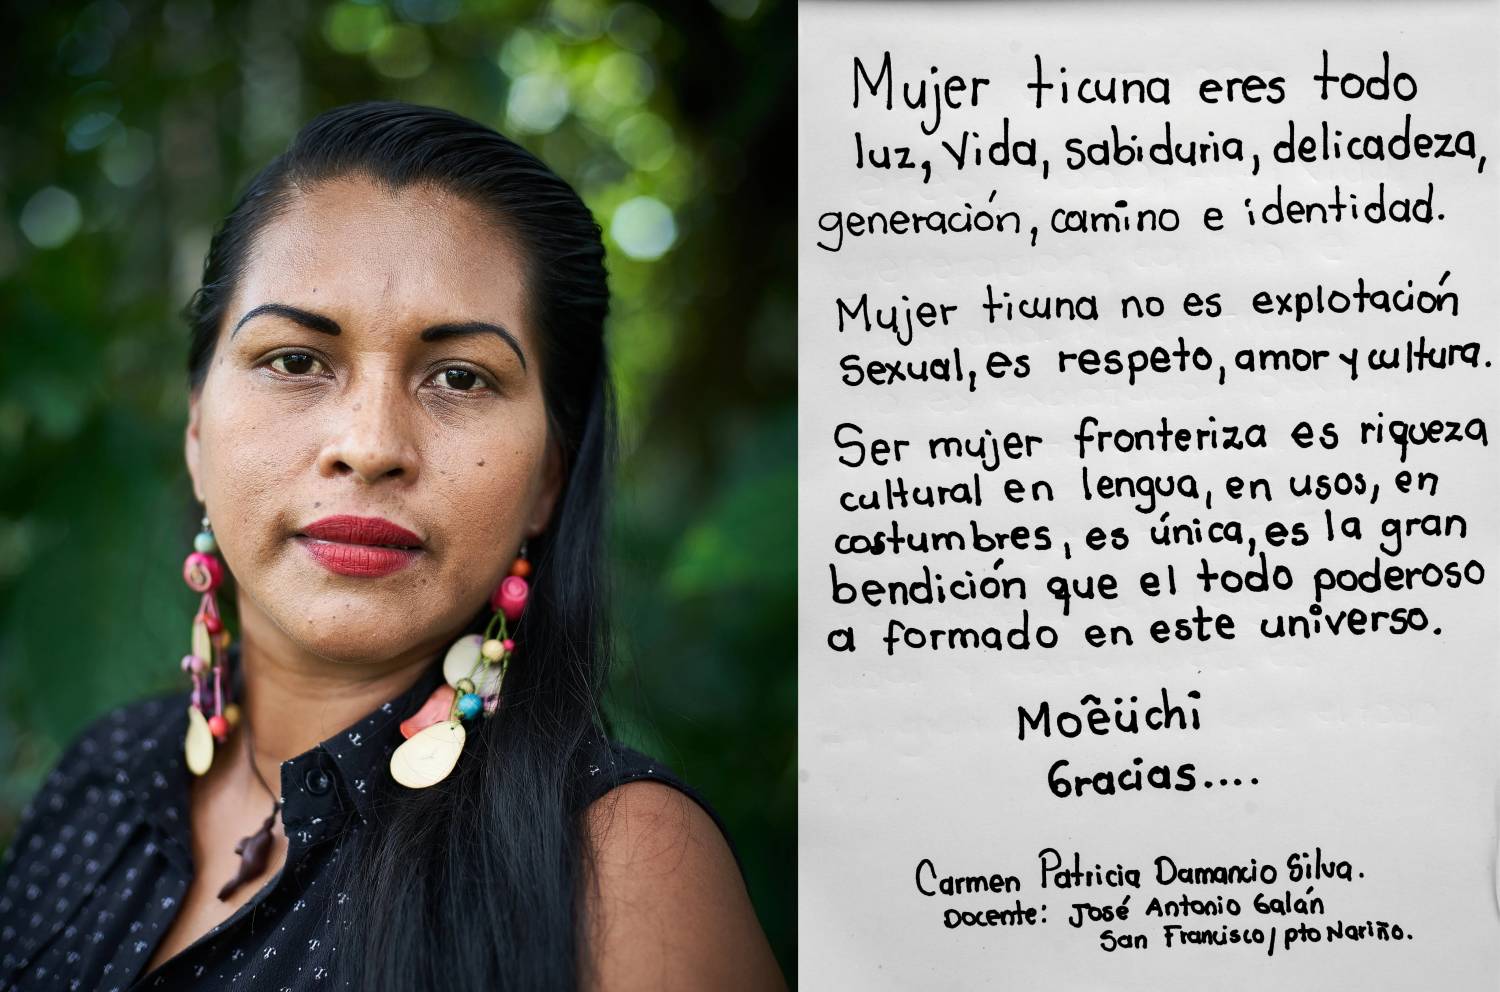 Mujer ticuna eres todo
luz, vida, sabiduria, delicadeza,
generación, camino e identidad.
Mujer ticuna no es explotación
sexual, es respeto, amor y cultura.
Ser mujer fronteriza es riqueza
cultural en lengua, en usos, en
costumbres, es única, es la gran
bendición que el todo poderoso
a formado en este universo.
Moêüchi
Gracias....
Carmen Patricia Damancio Silva.
Docente: José Antonio Galán
San Francisco/pto Nariño.